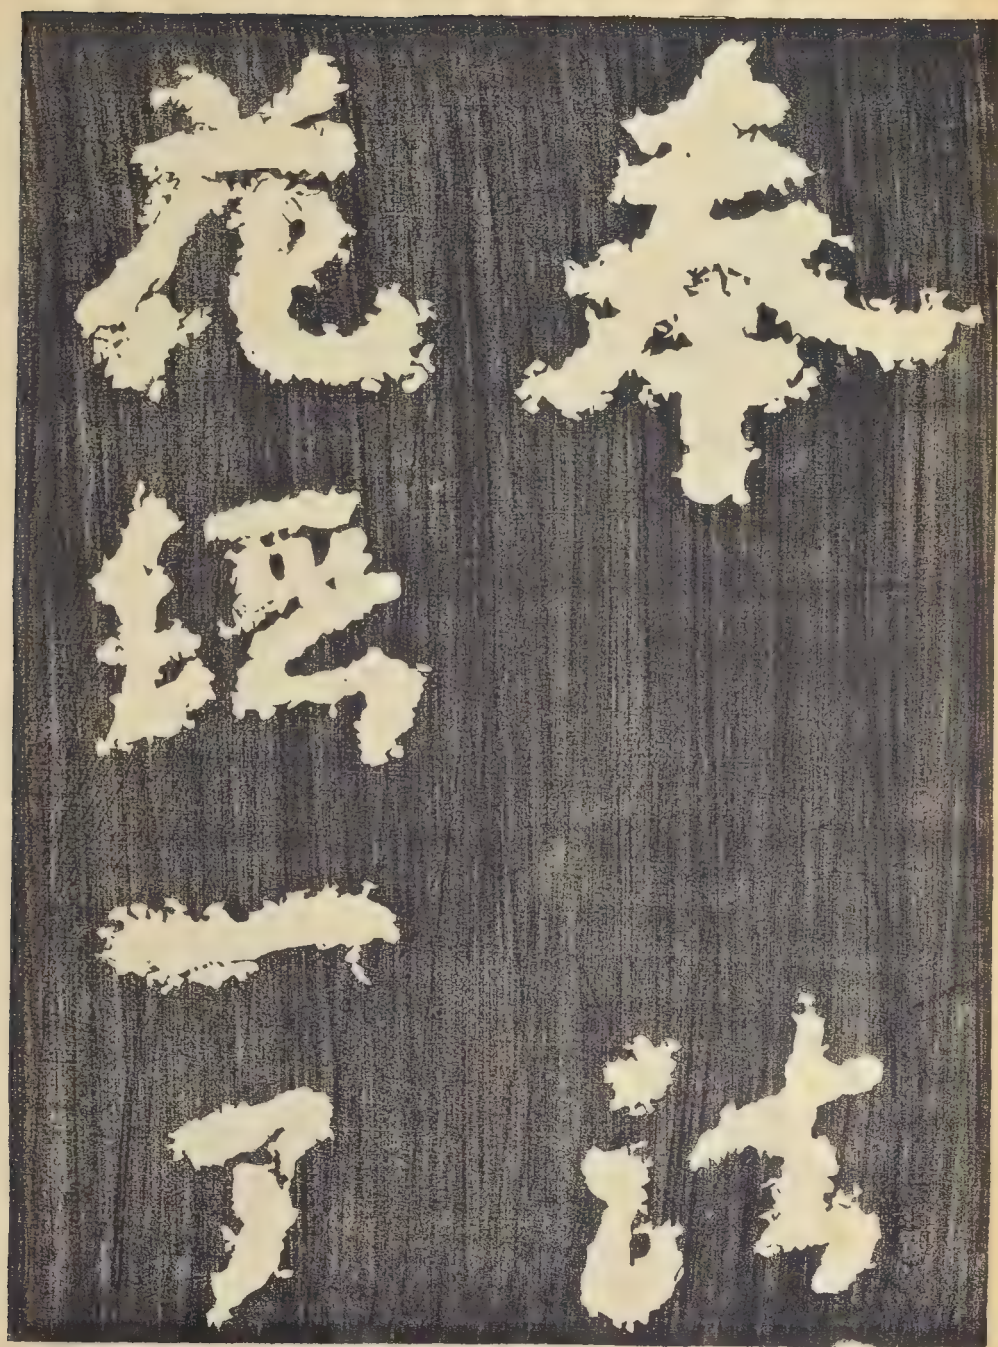 奉　法
花經一部